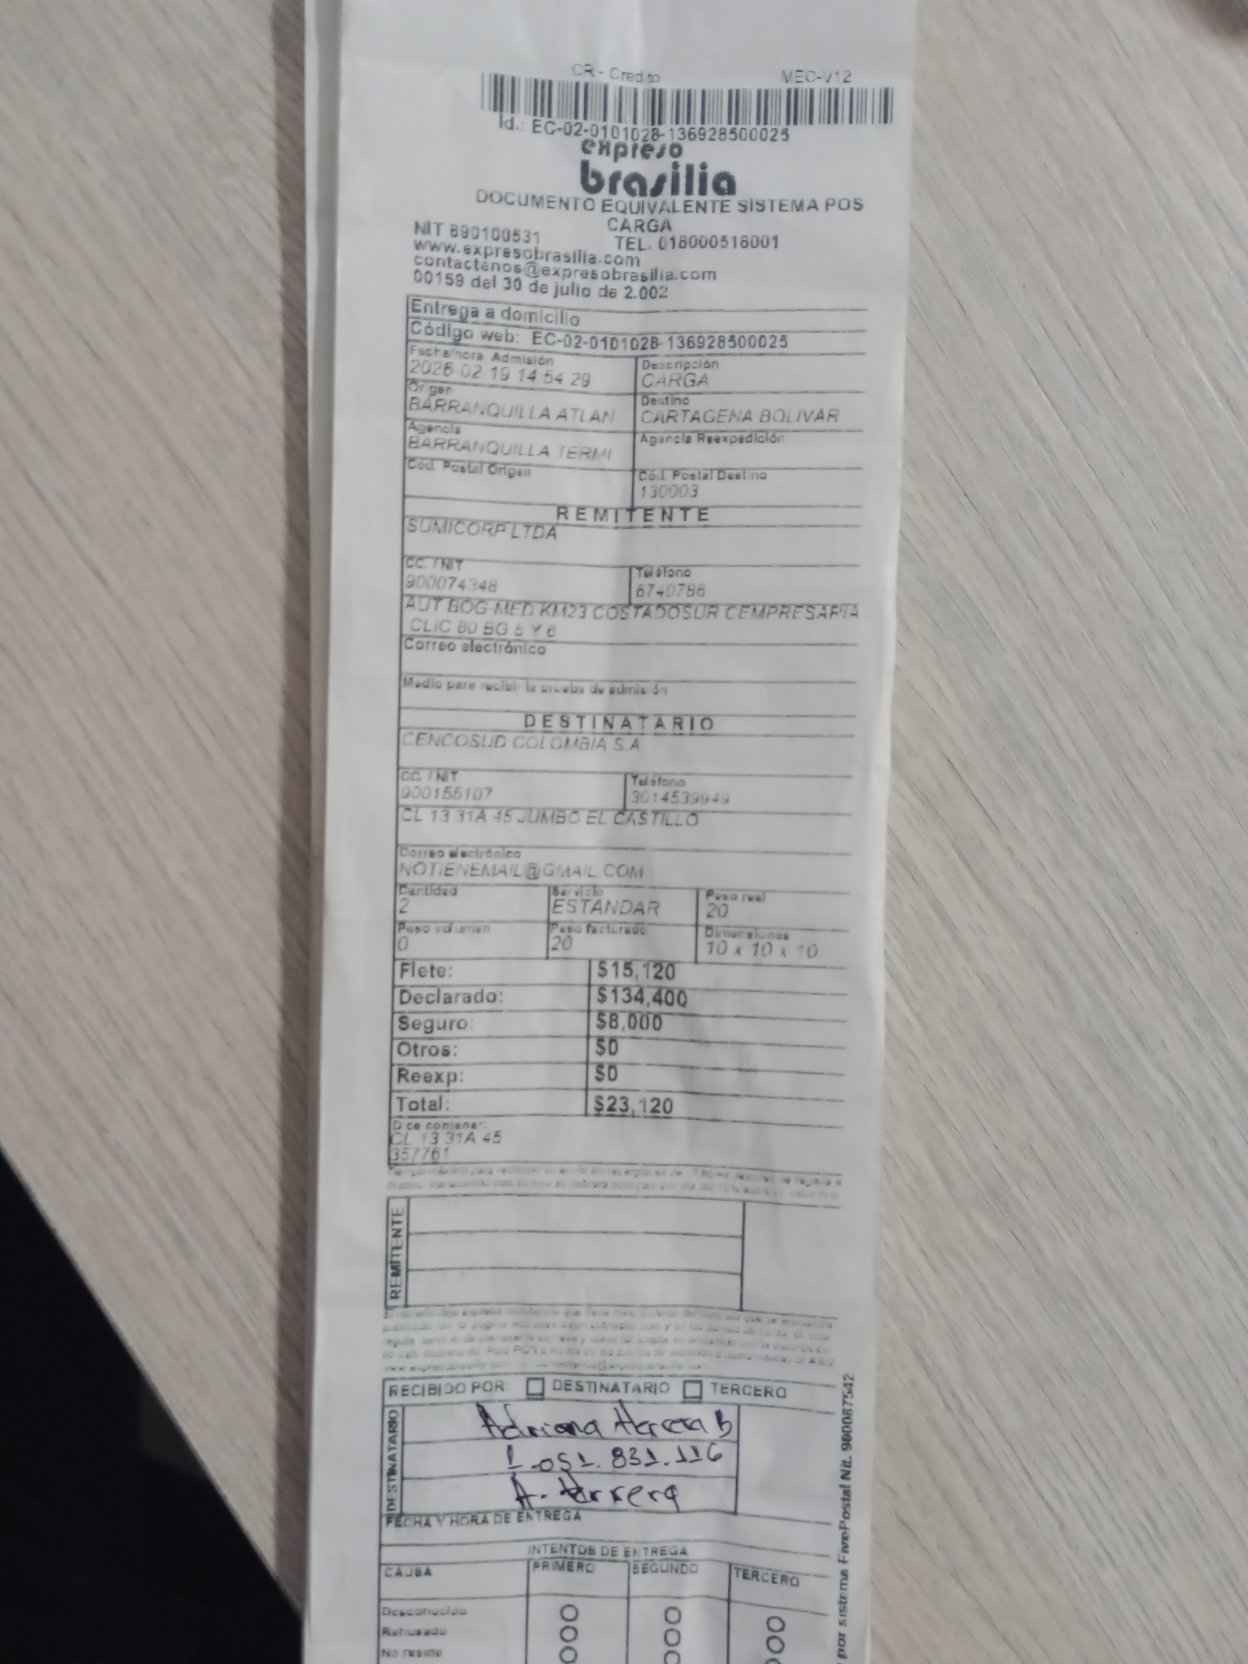 CR - Credito MEC-V12
Id.: EC-02-0101028-136928500025
expreso
brasilia
DOCUMENTO EQUIVALENTE SISTEMA POS
CARGA
NIT 890100531 TEL. 018000516001
www.expresobrasilia.com
contactenos@expresobrasilia.com
00159 del 30 de julio de 2.002
Entrega a domicilio
Código web: EC-02-0101028-136928500025
Fecha/hora Admisión Descripción
2026-02-19 14:54:29 CARGA
Origen Destino
BARRANQUILLA ATLAN CARTAGENA BOLIVAR
Agencia Agencia Reexpedición
BARRANQUILLA TERMI
Cód. Postal Origen Cód. Postal Destino
130003
REMITENTE
SUMICORP LTDA
CC. / NIT Teléfono
900074348 6740786
AUT BOG-MED KM23 COSTADOSUR CEMPRESARIA
CLIC 80 BG 5 Y 6
Correo electrónico
Medio para recibir la prueba de admisión
DESTINATARIO
CENCOSUD COLOMBIA S.A
CC. / NIT Teléfono
900155107 3014539949
CL 13 31A 45 JUMBO EL CASTILLO
Correo electrónico
NOTIENEMAIL@GMAIL.COM
Cantidad Servicio Peso real
2 ESTANDAR 20
Peso volumen Peso facturado Dimensiones
0 20 10 x 10 x 10
Flete: $15,120
Declarado: $134,400
Seguro: $8,000
Otros: $0
Reexp: $0
Total: $23,120
Dice contener:
CL 13 31A 45
357761
REMITENTE
RECIBIDO POR: DESTINATARIO TERCERO
DESTINATARIO
Adriana Herrera B
1.051.831.116
A. Herrera
FECHA Y HORA DE ENTREGA
INTENTOS DE ENTREGA
CAUSA PRIMERO SEGUNDO TERCERO
Desconocido
Rehusado
No reside
por sistema FivePostal Nit. 900087542